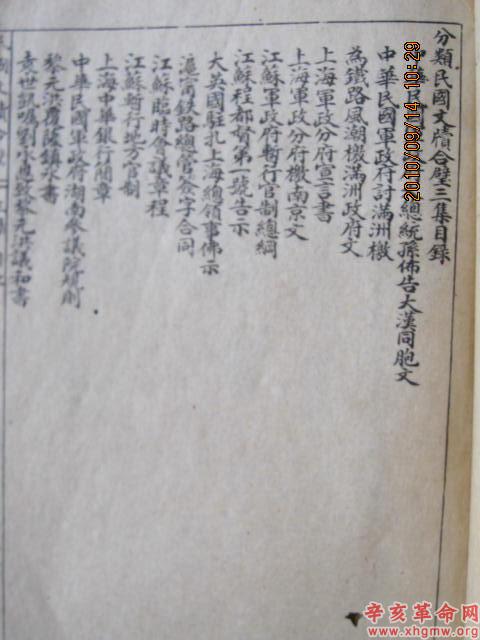 分類民國文牘合璧三集目錄
中華民國 總統孫佈告大漢同胞文
中華民國軍政府討滿洲檄
為鐵路風潮檄滿洲政府文
上海軍政分府宣言書
上海軍政分府檄南京文
江蘇軍政府暫行官制總綱
江蘇程都督第一號告示
大英國駐扎上海總領事佈示
滬甯鉄路總管簽字合同
江蘇臨時議會章程
江蘇暫行地方官制
上海中華銀行簡章
中華民國軍政府湖南參議院規則
黎元洪覆薩鎮冰書
袁世凱囑劉承恩致黎元洪議和書
2010/09/14 10:29
辛亥革命网
www.xhgmw.org